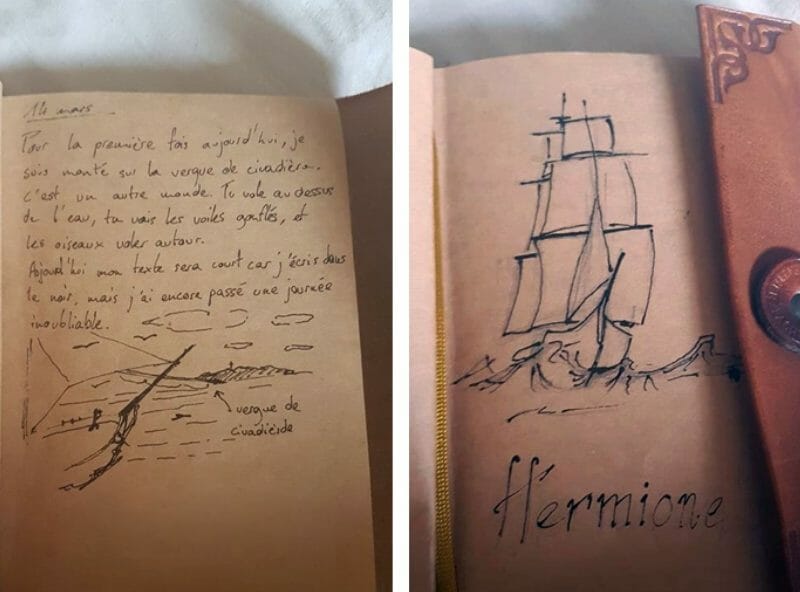 14 mars
Pour la première fois aujourd'hui, je
suis monté sur la vergue de civadière.
c'est un autre monde. Tu vole au dessus
de l'eau, tu vois les voiles gonflés, et
les oiseaux voler autour.
Aujourd'hui mon texte sera court car j'écris dans
le noir, mais j'ai encore passé une journée
inoubliable.
vergue de
civadiéide
Hermione